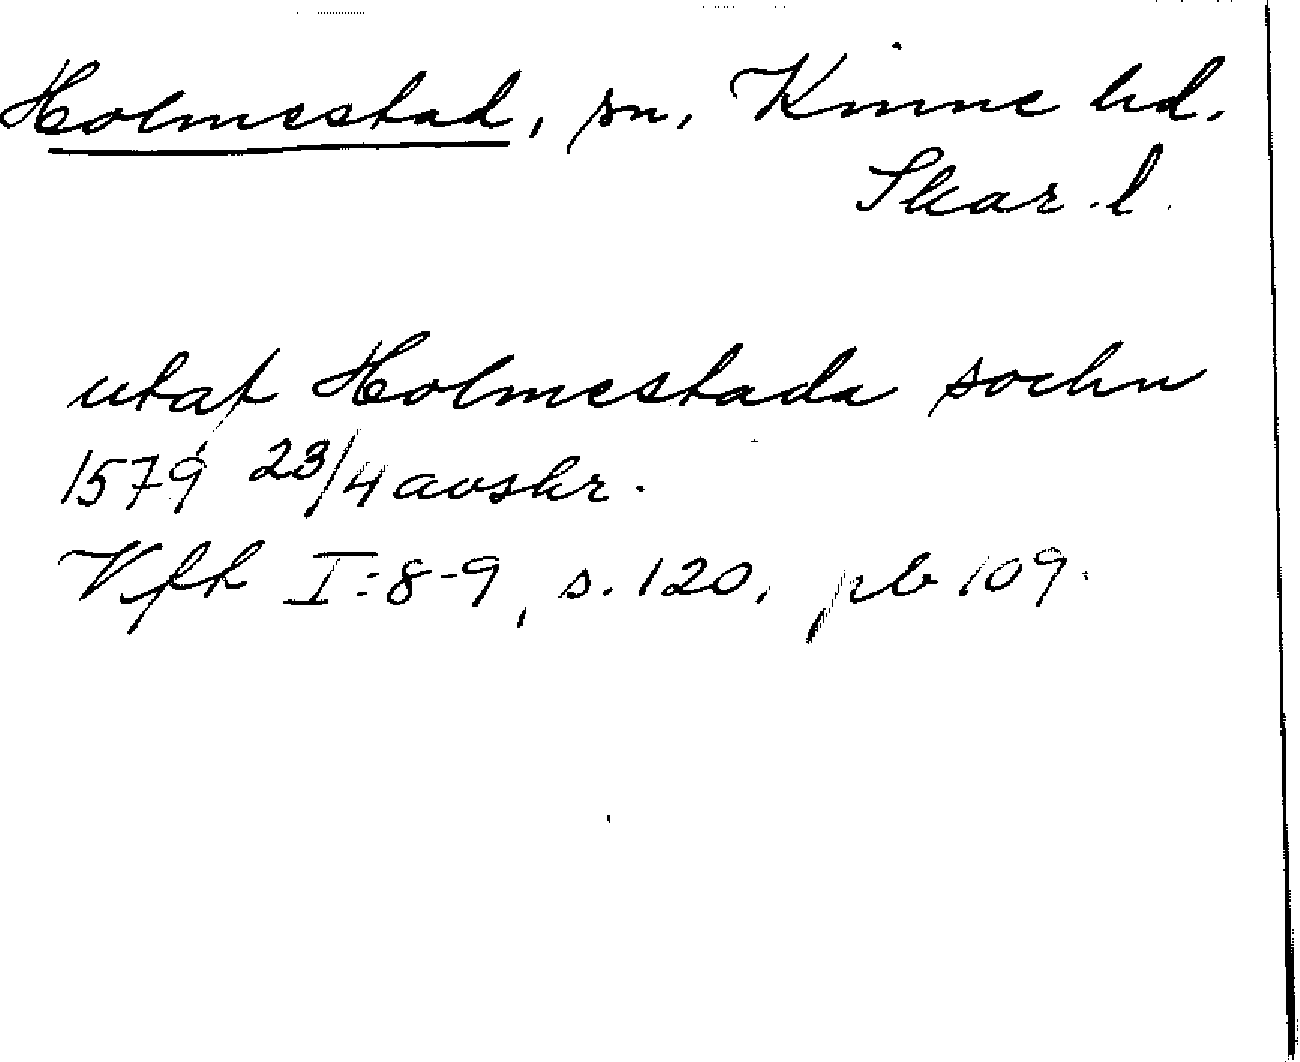 Holmestad, sn, Kinne hd.
Skar. l.
utaf Holmestada sochn
1579 23/4 avskr.
Vfth I:8-9, s. 120, pb 109.